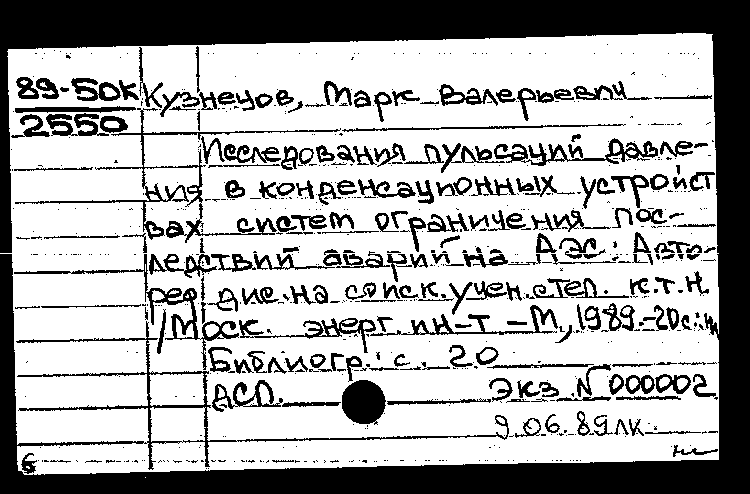 89-50к Кузнецов, Марк Валерьевич
2550
Исследования пульсаций давле-
ния в конденсационных устройст
вах систем ограничения пос-
ледствий аварий на АЭС: Авто-
реф дис. на соиск. учен. степ. к.т.н.
/Моск. энерг. ин-т -М., 1989.-20с.:
Библиогр.: с. 20
АСП. Экз. N 000002
9.06.89 лк.
6